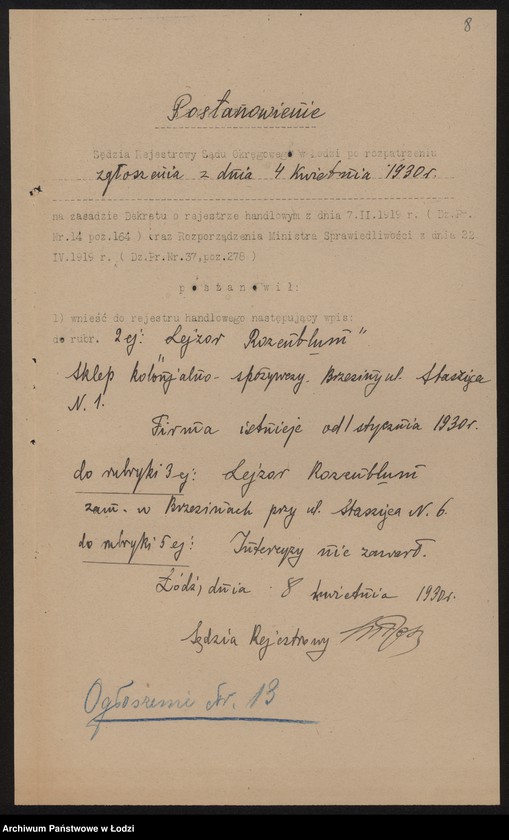 8
Postanowienie
Sędzia Rejestrowy Sądu Okręgowego w Łodzi po rozpatrzeniu
zgłoszenia z dnia 4 kwietnia 1930 r.
na zasadzie Dekretu o rejestrze handlowym z dnia 7.II.1919 r. ( Dz.Pr.
Nr.14 poz.164 ) oraz Rozporządzenia Ministra Sprawiedliwości z dnia 22
IV.1919 r. ( Dz.Pr.Nr.37,poz.278 )
p o s t a n o w i ł :
1) wnieść do rejestru handlowego następujący wpis:
do rubr. 2ej: Lejzor Rozenblum"
Sklep kolonjalno-spożywczy. Brzeziny ul. Staszyca
N. 1.
Firma istnieje od 1 stycznia 1930 r.
do rubryki 3ej: Lejzor Rozenblum
zam. w Brzezinach przy ul. Staszyca N. 6.
do rubryki 5ej: Intercyzy nie zawarł.
Łódź, dnia 8 kwietnia 1930 r.
Sędzia Rejestrowy
Ogłoszenie Nr. 13
Archiwum Państwowe w Łodzi